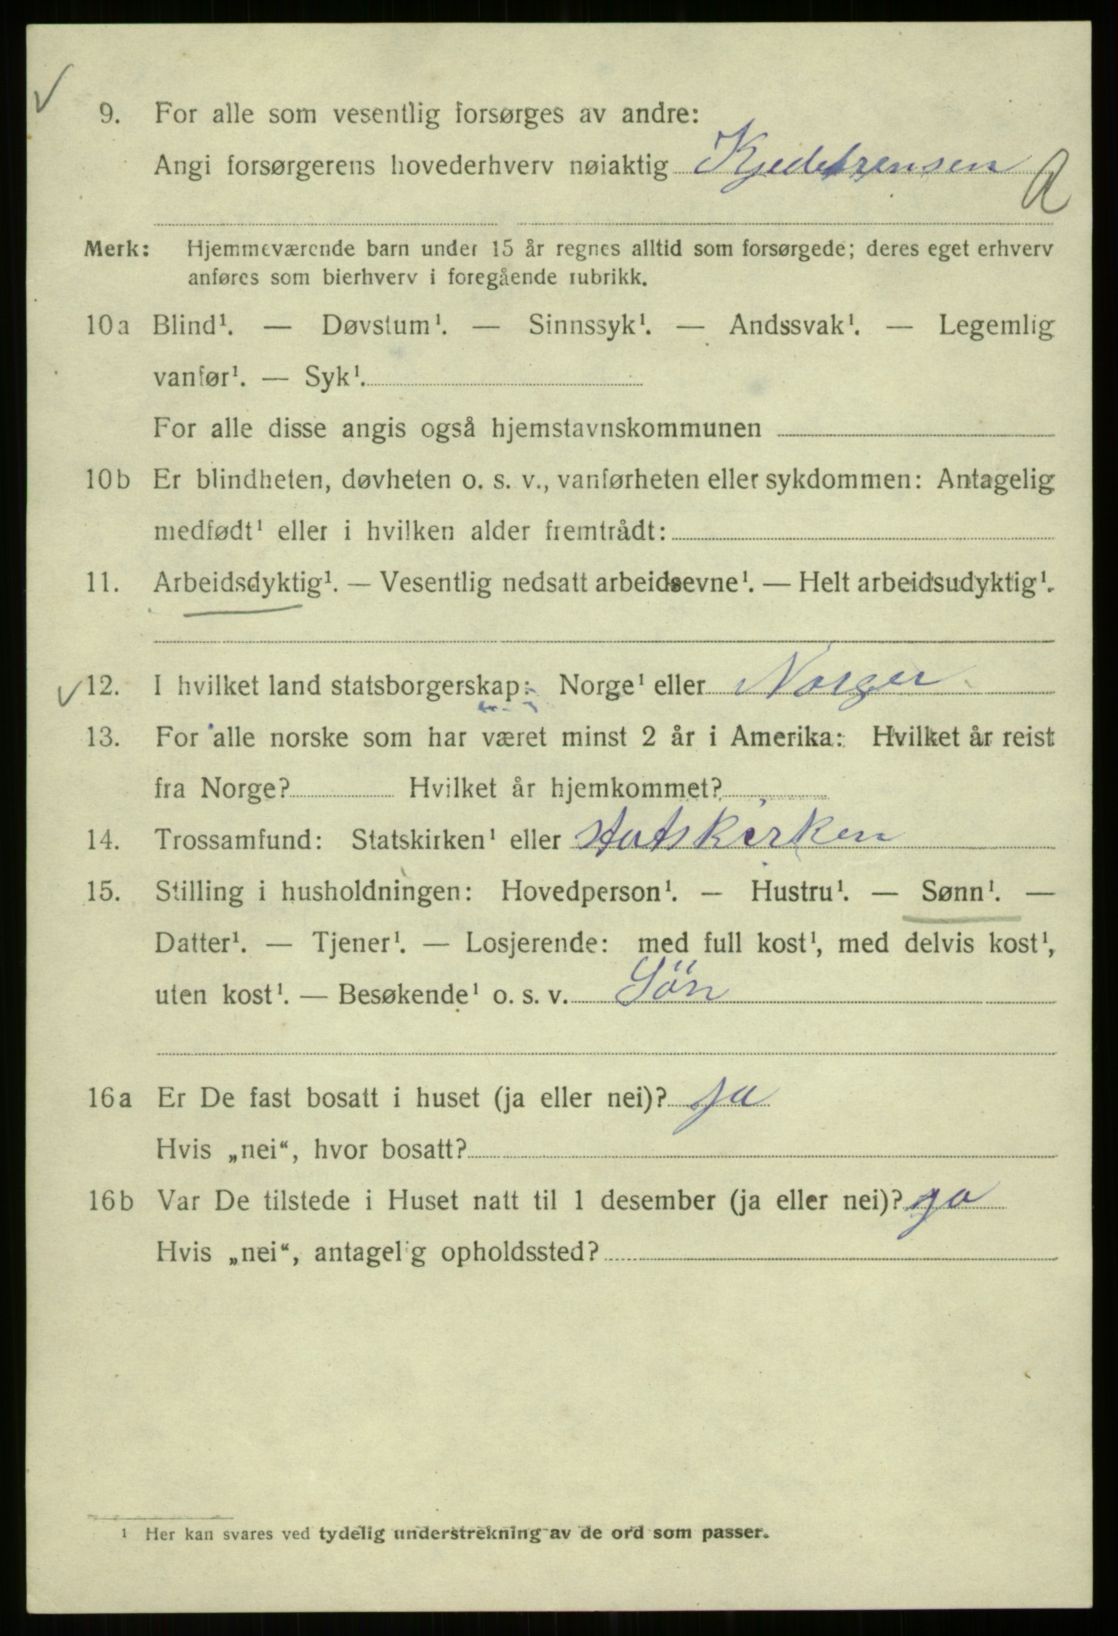 9. For alle som vesentlig forsørges av andre:
Angi forsørgerens hovederhverv nøiaktig Kjedelrensen
Merk: Hjemmeværende barn under 15 år regnes alltid som forsørgede; deres eget erhverv
anføres som bierhverv i foregående rubrikk.
10a Blind¹. — Døvstum¹. — Sinnssyk¹. — Andssvak¹. — Legemlig
vanfør¹. — Syk¹.
For alle disse angis også hjemstavnskommunen
10b Er blindheten, døvheten o. s. v., vanførheten eller sykdommen: Antagelig
medfødt¹ eller i hvilken alder fremtrådt:
11. Arbeidsdyktig¹. — Vesentlig nedsatt arbeidsevne¹. — Helt arbeidsudyktig¹.
12. I hvilket land statsborgerskap: Norge¹ eller Norger
13. For alle norske som har været minst 2 år i Amerika: Hvilket år reist
fra Norge? Hvilket år hjemkommet?
14. Trossamfund: Statskirken¹ eller statskirken
15. Stilling i husholdningen: Hovedperson¹. — Hustru¹. — Sønn¹. —
Datter¹. — Tjener¹. — Losjerende: med full kost¹, med delvis kost¹,
uten kost¹. — Besøkende¹ o. s. v. Sön
16a Er De fast bosatt i huset (ja eller nei)? ja
Hvis „nei“, hvor bosatt?
16b Var De tilstede i Huset natt til 1 desember (ja eller nei)? ja
Hvis „nei“, antagelig opholdssted?
¹ Her kan svares ved tydelig understrekning av de ord som passer.